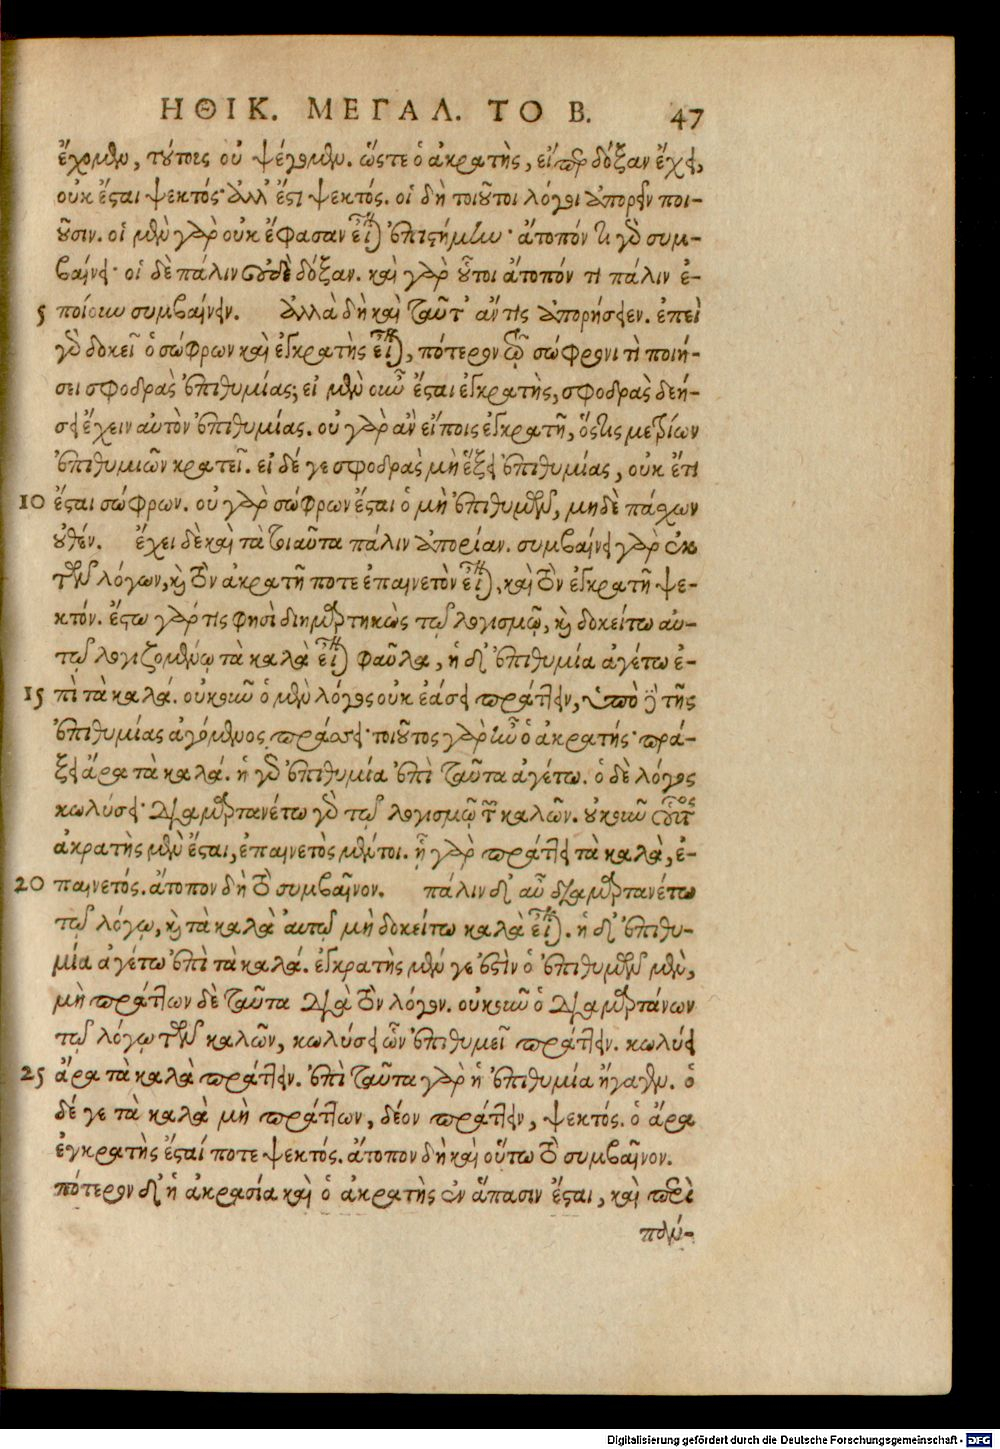 ΗΘΙΚ. ΜΕΓΑΛ. ΤΟ Β. 47
ἔχομεν, τούτοις οὐ ψέγομεν. ὥστε ὁ ἀκρατὴς, εἴπερ δόξαν ἔχει,
οὐκ ἔσται ψεκτός· ἀλλ' ἔστι ψεκτός. οἱ δὴ τοιοῦτοι λόγοι ἀπορεῖν ποι-
οῦσιν. οἱ μὲν γὰρ οὐκ ἔφασαν εἶναι ἐπιστήμην· ἄτοπόν τι γὰρ συμ-
βαίνει· οἱ δὲ πάλιν οὐδὲ δόξαν. καὶ γὰρ οὗτοι ἄτοπόν τι πάλιν ἐ-
5 ποίουν συμβαίνειν. ἀλλὰ δὴ καὶ ταῦτ' ἄν τις ἀπορήσειεν. ἐπεὶ
γὰρ δοκεῖ ὁ σώφρων καὶ ἐγκρατὴς εἶναι, πότερον τῷ σώφρονι τὶ ποιή-
σει σφοδρὰς ἐπιθυμίας; εἰ μὲν οὖν ἔσται ἐγκρατὴς, σφοδρὰς δεή-
σει ἔχειν αὐτὸν ἐπιθυμίας. οὐ γὰρ ἂν εἴποις ἐγκρατῆ, ὅστις μετρίων
ἐπιθυμιῶν κρατεῖ. εἰ δέ γε σφοδρὰς μὴ ἕξει ἐπιθυμίας, οὐκ ἔτι
10 ἔσται σώφρων. οὐ γὰρ σώφρων ἔσται ὁ μὴ ἐπιθυμῶν, μηδὲ πάσχων
οὐθέν. ἔχει δὲ καὶ τὰ τοιαῦτα πάλιν ἀπορίαν. συμβαίνει γὰρ ἐκ
τῶν λόγων, καὶ τὸν ἀκρατῆ ποτε ἐπαινετὸν εἶναι, καὶ τὸν ἐγκρατῆ ψε-
κτόν. ἔστω γάρ τις φησὶ διημαρτηκὼς τῷ λογισμῷ, καὶ δοκείτω αὐ-
τῷ λογιζομένῳ τὰ καλὰ εἶναι φαῦλα, ἡ δ' ἐπιθυμία ἀγέτω ἐ-
15 πὶ τὰ καλά. οὐκοῦν ὁ μὲν λόγος οὐκ ἐάσει πράττειν, ὑπὸ δὲ τῆς
ἐπιθυμίας ἀγόμενος πράσσει· τοιοῦτος γὰρ ἦν ὁ ἀκρατής· πρά-
ξει ἄρα τὰ καλά. ἡ γὰρ ἐπιθυμία ἐπὶ ταῦτα ἀγέτω. ὁ δὲ λόγος
κωλύσει· διαμαρτανέτω γὰρ τῷ λογισμῷ τῶν καλῶν. οὐκοῦν οὗτος
ἀκρατὴς μὲν ἔσται, ἐπαινετὸς μέντοι. ᾗ γὰρ πράττει τὰ καλὰ, ἐ-
20 παινετός. ἄτοπον δὴ τὸ συμβαῖνον. πάλιν δ' αὖ διαμαρτανέτω
τῷ λόγῳ, καὶ τὰ καλὰ αὐτῷ μὴ δοκείτω καλὰ εἶναι. ἡ δ' ἐπιθυ-
μία ἀγέτω ἐπὶ τὰ καλά. ἐγκρατὴς μέν γε ἐστὶν ὁ ἐπιθυμῶν μὲν,
μὴ πράττων δὲ ταῦτα διὰ τὸν λόγον. οὐκοῦν ὁ διαμαρτάνων
τῷ λόγῳ τῶν καλῶν, κωλύσει ὧν ἐπιθυμεῖ πράττειν. κωλύει
25 ἄρα τὰ καλὰ πράττειν. ἐπὶ ταῦτα γὰρ ἡ ἐπιθυμία ἤγαγεν. ὁ
δέ γε τὰ καλὰ μὴ πράττων, δέον πράττειν, ψεκτός. ὁ ἄρα
ἐγκρατὴς ἔσταί ποτε ψεκτός. ἄτοπον δὴ καὶ οὕτω τὸ συμβαῖνον.
πότερον δ' ἡ ἀκρασία καὶ ὁ ἀκρατὴς ἐν ἅπασιν ἔσται, καὶ περὶ
πολύ-
Digitalisierung gefördert durch die Deutsche Forschungsgemeinschaft - DFG